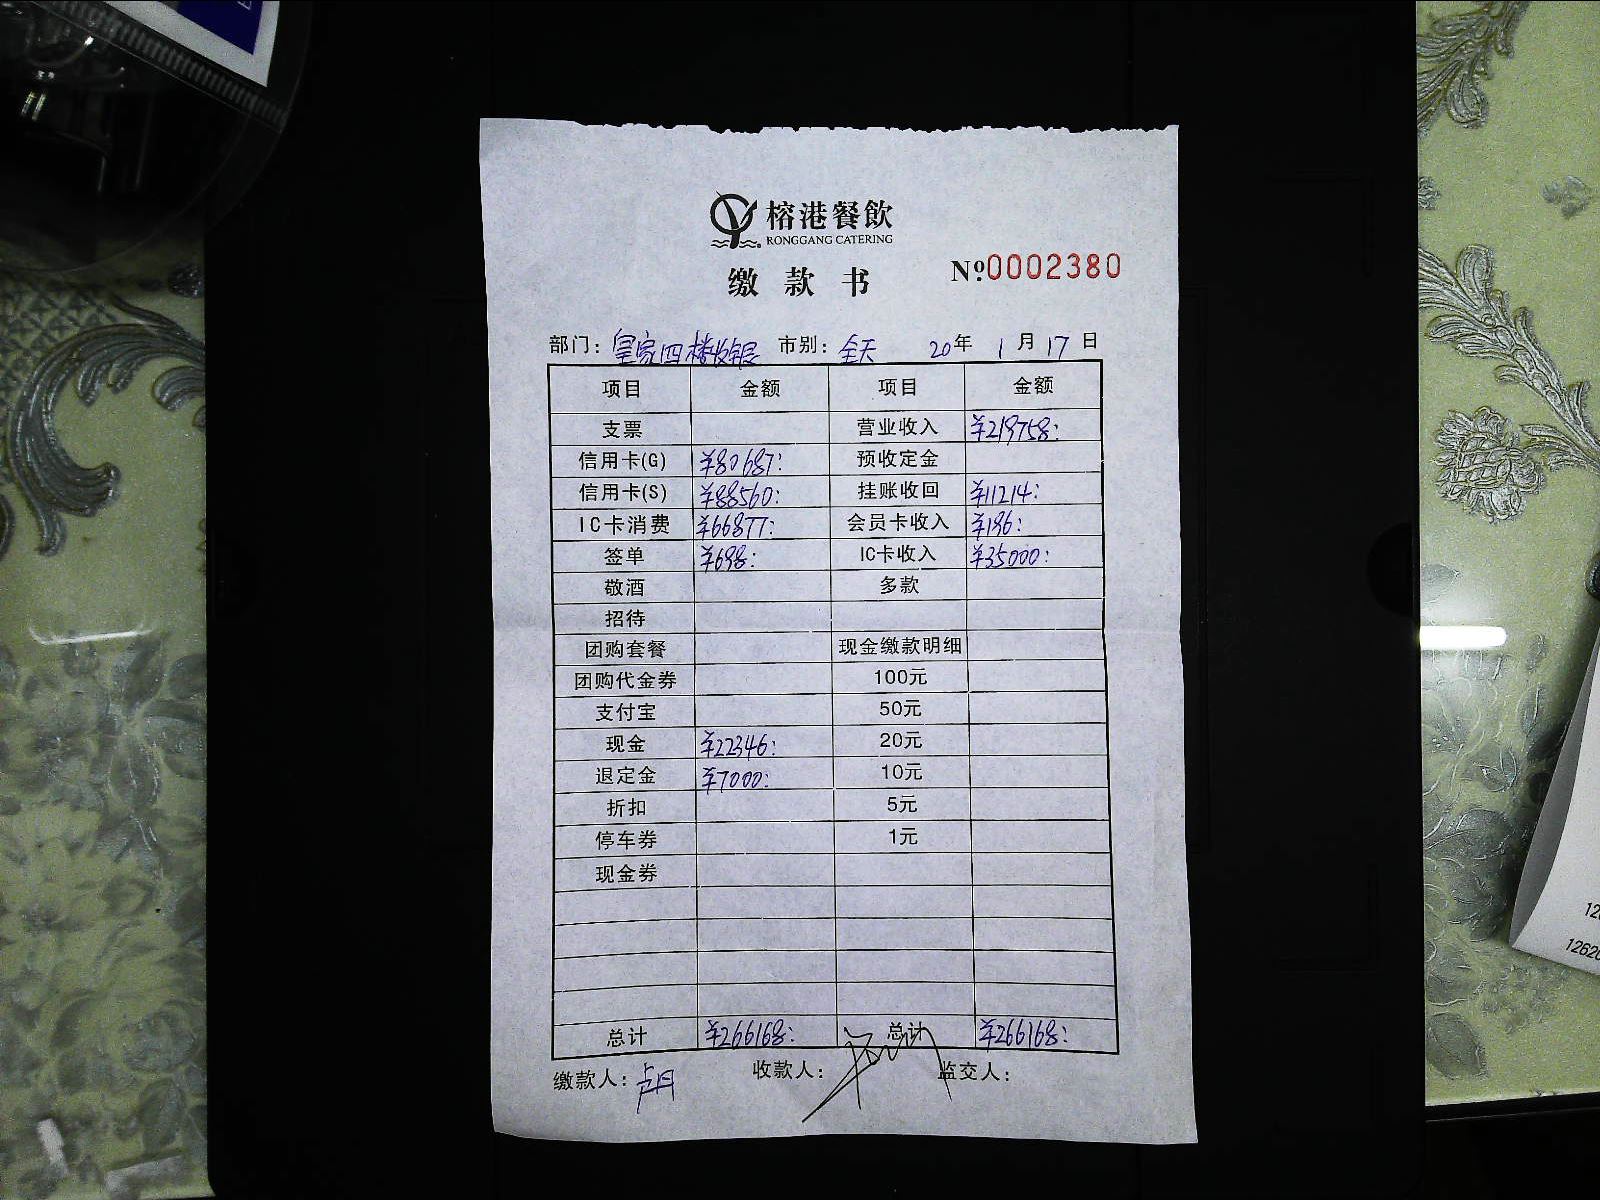 榕港餐飲
RONGGANG CATERING
缴款书 Nº0002380
部门：皇家四楼收银 市别：全天 20年 1月17日
项目 金额 项目 金额
支票 营业收入 ¥219758:
信用卡(G) ¥80687: 预收定金
信用卡(S) ¥88560: 挂账收回 ¥11214:
IC卡消费 ¥66877: 会员卡收入 ¥196:
签单 ¥698: IC卡收入 ¥35000:
敬酒 多款
招待
团购套餐 现金缴款明细
团购代金券 100元
支付宝 50元
现金 ¥22346: 20元
退定金 ¥7000: 10元
折扣 5元
停车券 1元
现金券
总计 ¥266168: 总计 ¥266168:
缴款人：卢丹 收款人： 监交人：